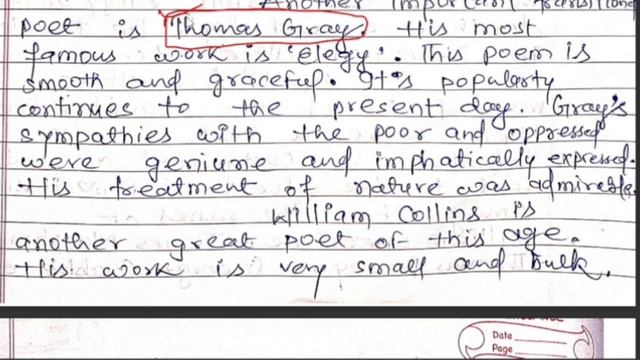 Another important transitional
poet is Thomas Gray. His most
famous work is 'elegy'. This poem is
smooth and graceful. It's popularty
continues to the present day. Gray's
sympathies with the poor and oppressed
were geniune and imphatically expressed.
His treatment of nature was admirable.
William Collins is
another great poet of this age.
His work is very small and bulk.
Date
Page